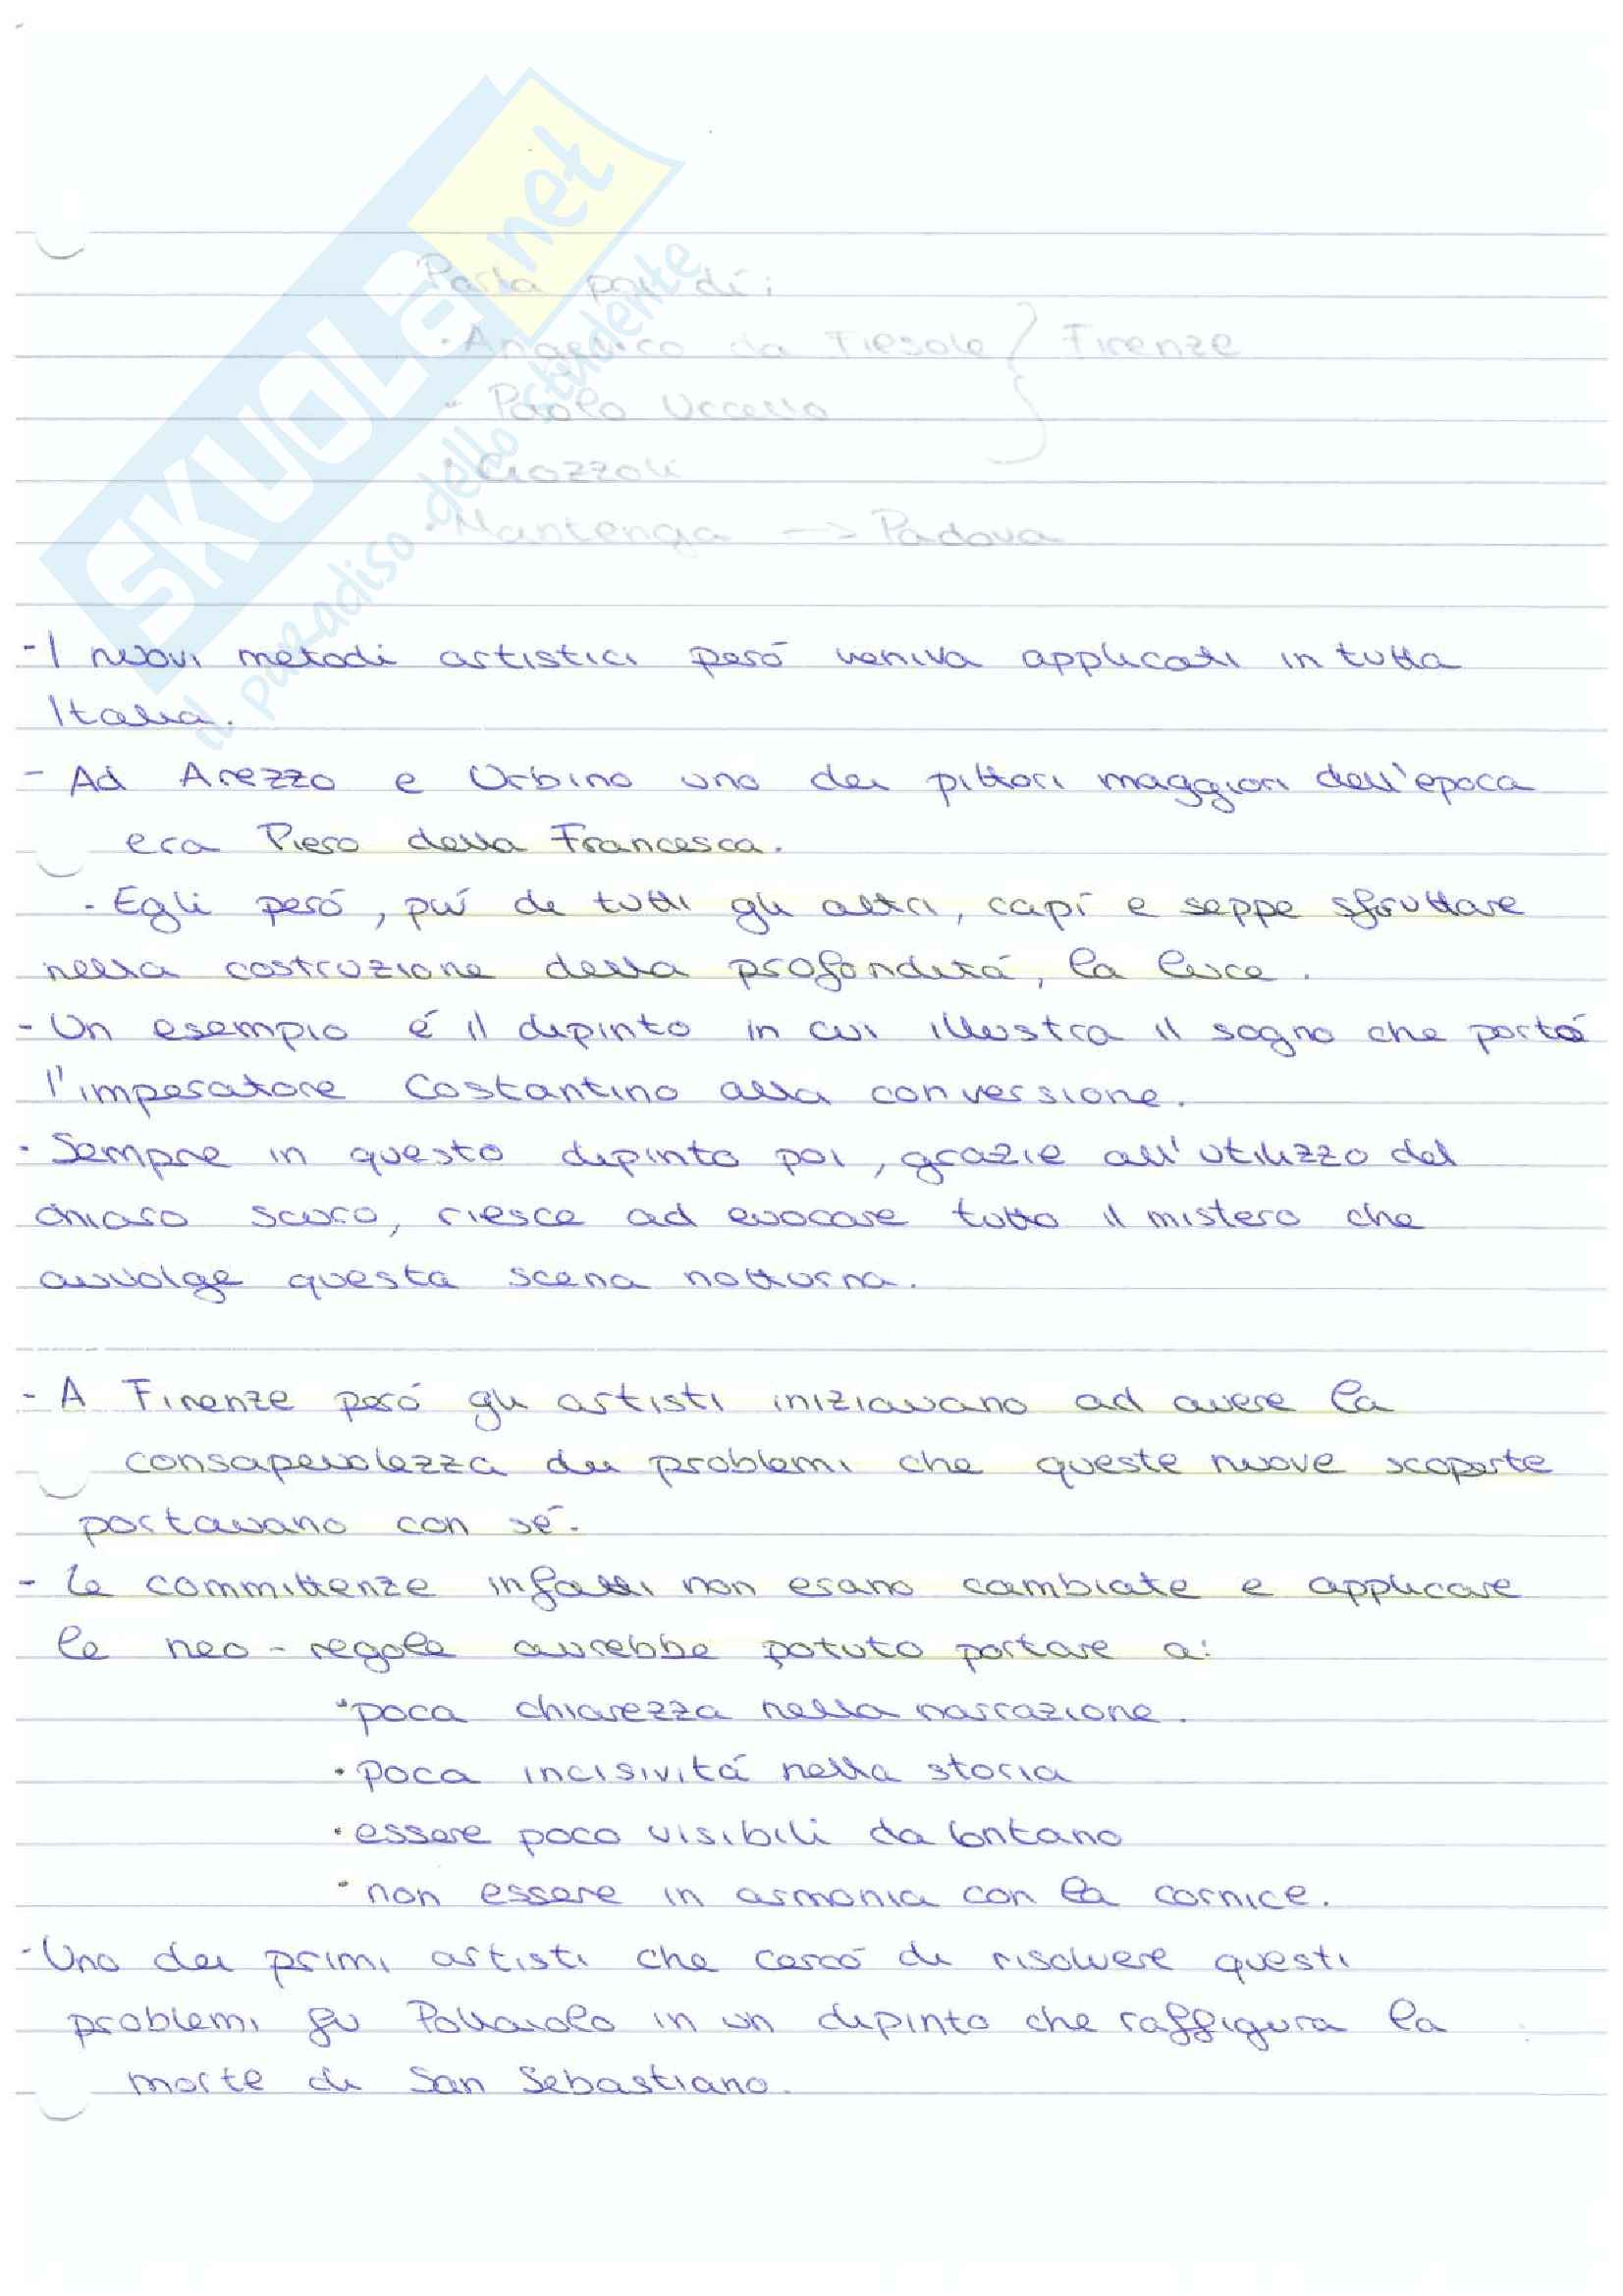 SKUOLA.net
il paradiso dello studente
Parla poi di:
· Angelico da Fiesole } Firenze
- Paolo Uccello
· Gozzoli
· Mantenga -> Padova
- I nuovi metodi artistici peró veniva applicati in tutta
Italia.
- Ad Arezzo e Urbino uno dei pittori maggiori dell'epoca
era Piero della Francesca.
- Egli peró, piú di tutti gli altri, capí e seppe sfruttare
nella costruzione della profonditá, la luce.
- Un esempio é il dipinto in cui illustra il sogno che portó
l'imperatore Costantino alla conversione.
- Sempre in questo dipinto poi, grazie all'utilizzo del
chiaro scuro, riesce ad evocare tutto il mistero che
avvolge questa scena notturna.
- A Firenze peró gli artisti iniziavano ad avere la
consapevolezza dei problemi che queste nuove scoperte
portavano con sé.
- Le committenze infatti non erano cambiate e applicare
le neo-regole avrebbe potuto portare a:
· poca chiarezza nella narrazione.
· poca incisivitá nella storia
· essere poco visibili da lontano
· non essere in armonia con la cornice.
- Uno dei primi artisti che cercó di risolvere questi
problemi fu Pollaiolo in un dipinto che raffigura la
morte di San Sebastiano.